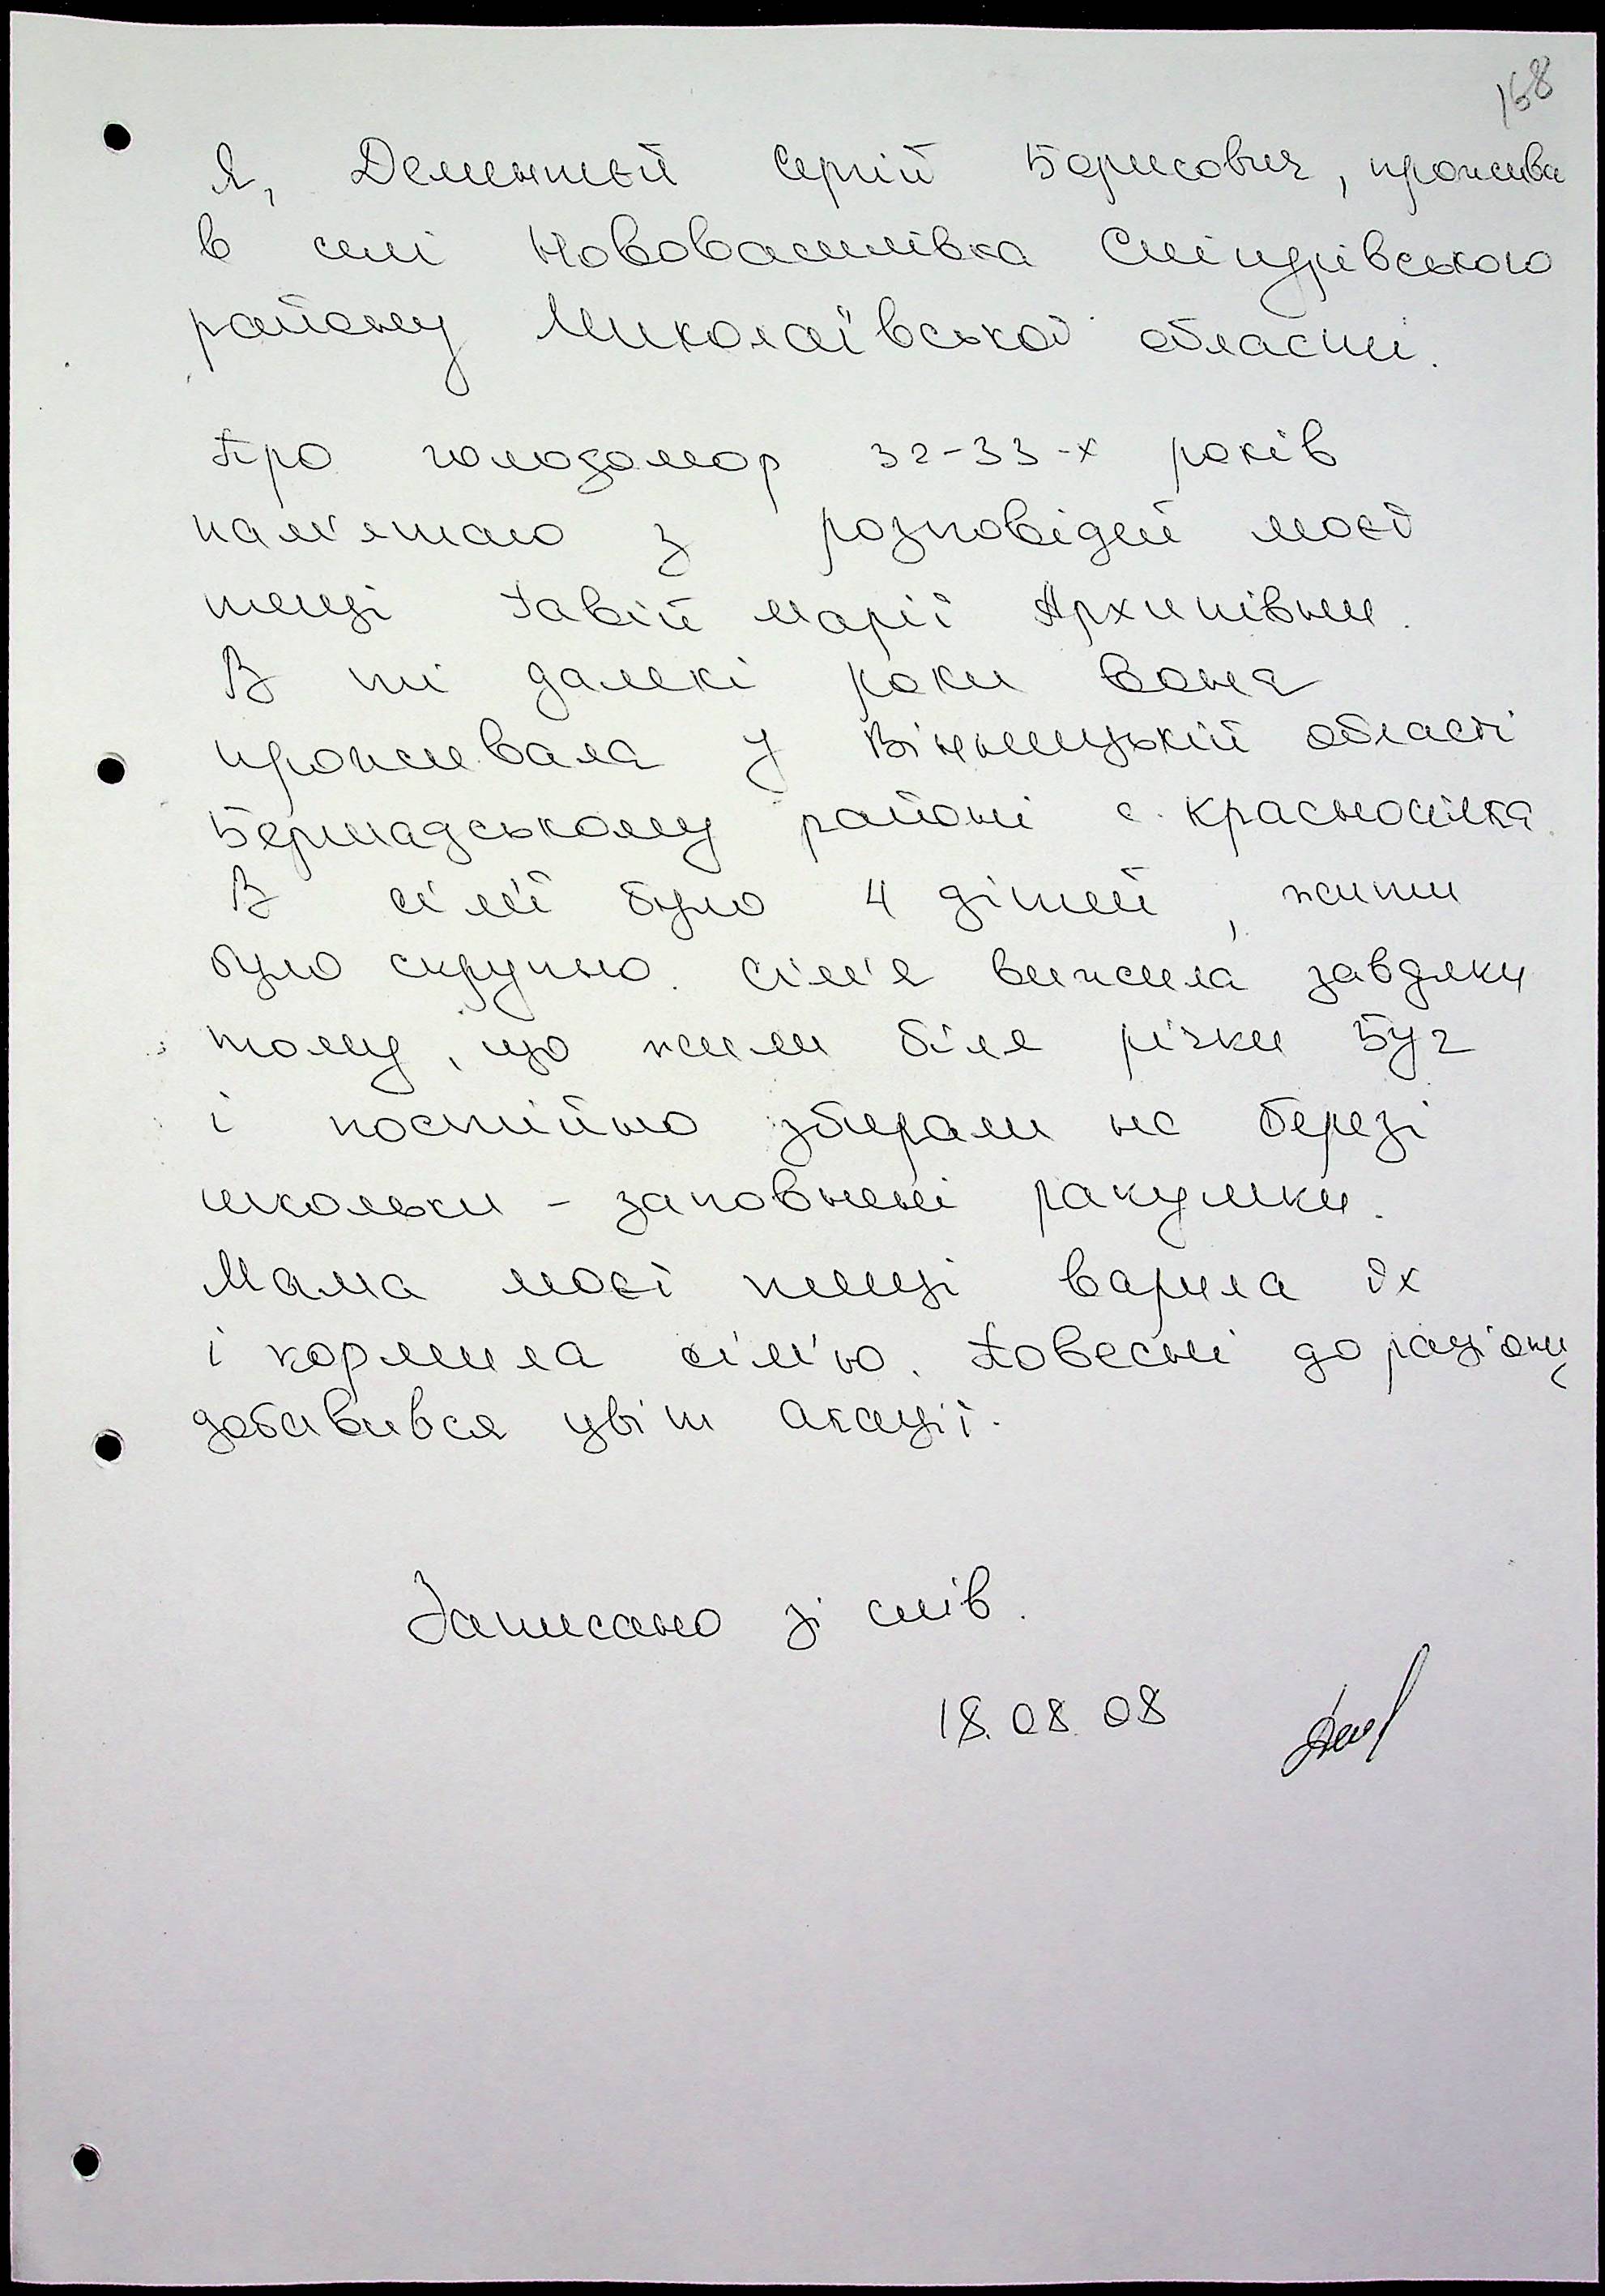 168
Я, Дементьєй Сергій Борисович, прожива
в селі Нововасилівка Снігурівського
району Миколаївської області.
Про голодомор 32-33-х років
пам'ятаю з розповідей моєї
тещі Гавій Марії Архипівни.
В ті далекі роки вона
проживала у Вінницькій області
Бершадському районі с. Красносілка.
В сім'ї було 4 дітей, жити
було скрутно. Сім'я вижила завдяки
тому, що жили біля річки Буг
і постійно збирали на березі
школьки - заповнені ракушки.
Мама моєї тещі варила їх
і кормила сім'ю. Повесні до раціону
добавився цвіт акації.
Записано зі слів.
18.08.08